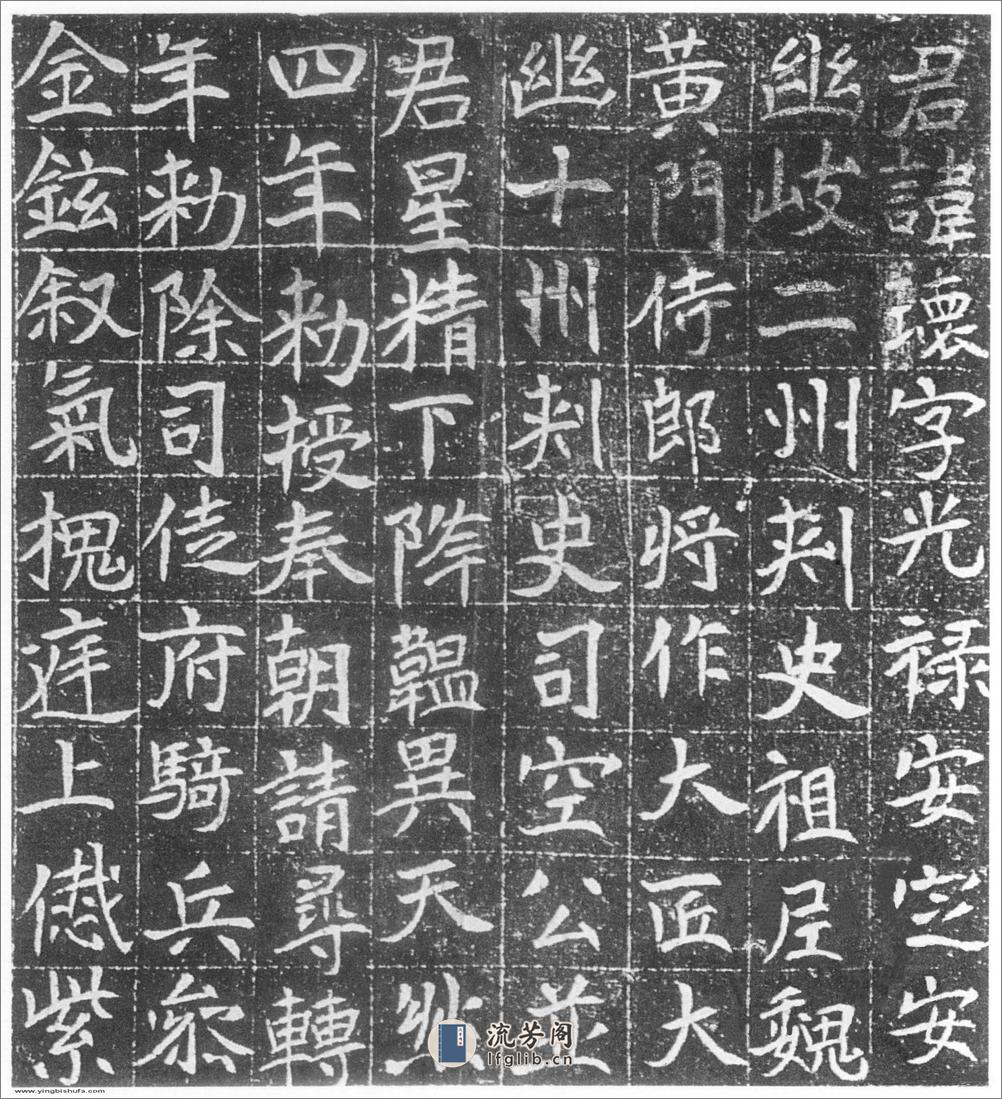 君諱瓌字光祿安定安
幽岐二州刾史祖尼魏
黃門侍郎將作大匠大
幽十州刾史司空公並
君星精下降韞異天然
四年勑授奉朝請尋轉
年勑除司徒府騎兵參
金鉉叙氣槐庭上紫
流芳阁
lfglib.cn
www.yingbishufa.com